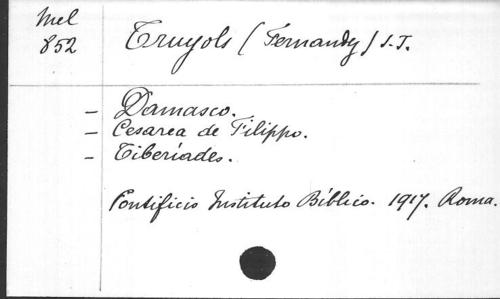 Mel
852
Truyols (Fernandy) S.T.
- Damasco.
- Cesarea de Filippo.
- Tiberíades.
Pontificio Instituto Bíblico. 1917. Roma.